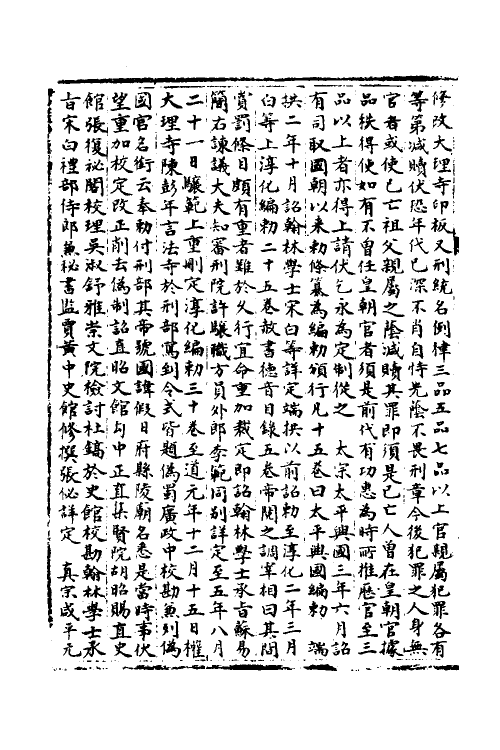 修改大理寺印板又刑統名例律三品五品七品以上官親屬犯罪各有
等第減贖伏恐年代已深不肖自恃先蔭不畏刑章今後犯罪之人身無
官者或使已亡祖父親屬之蔭減贖其罪即須是已亡人曾在皇朝官據
品秩得使如有不曾任皇朝官者須是前代有功惠為時所推歷官至三
品以上者亦得上請伏乞永為定制從之 太宗太平興國三年六月詔
有司取國朝以來勅條纂為編勅頒行凡十五卷曰太平興國編勅 端
拱二年十月詔翰林學士宋白等詳定端拱以前詔勅至淳化二年三月
白等上淳化編勅二十五卷赦書德音目錄五卷帝閱之謂宰相曰其間
賞罰條目頗有重者難於久行宜命重加裁定即詔翰林學士承旨蘇易
簡右諫議大夫知審刑院許驤職方員外郎李範同別詳定至五年八月
二十一日驤範上重刪定淳化編勅三十卷至道元年十二月十五日權
大理寺陳彭年言法寺於刑部寫到令式皆題偽蜀廣政中校勘兼列偽
國官名銜云奉勅付刑部其帝號國諱假日府縣陵廟名悉是當時事伏
望重加校定改正削去偽制詔直昭文館勾中正直集賢院胡昭賜直史
館張復祕閣校理吳淑舒雅崇文院檢討杜鎬於史館校勘翰林學士承
旨宋白禮部侍郎兼祕書監賈黃中史館修撰張佖詳定 真宗咸平元